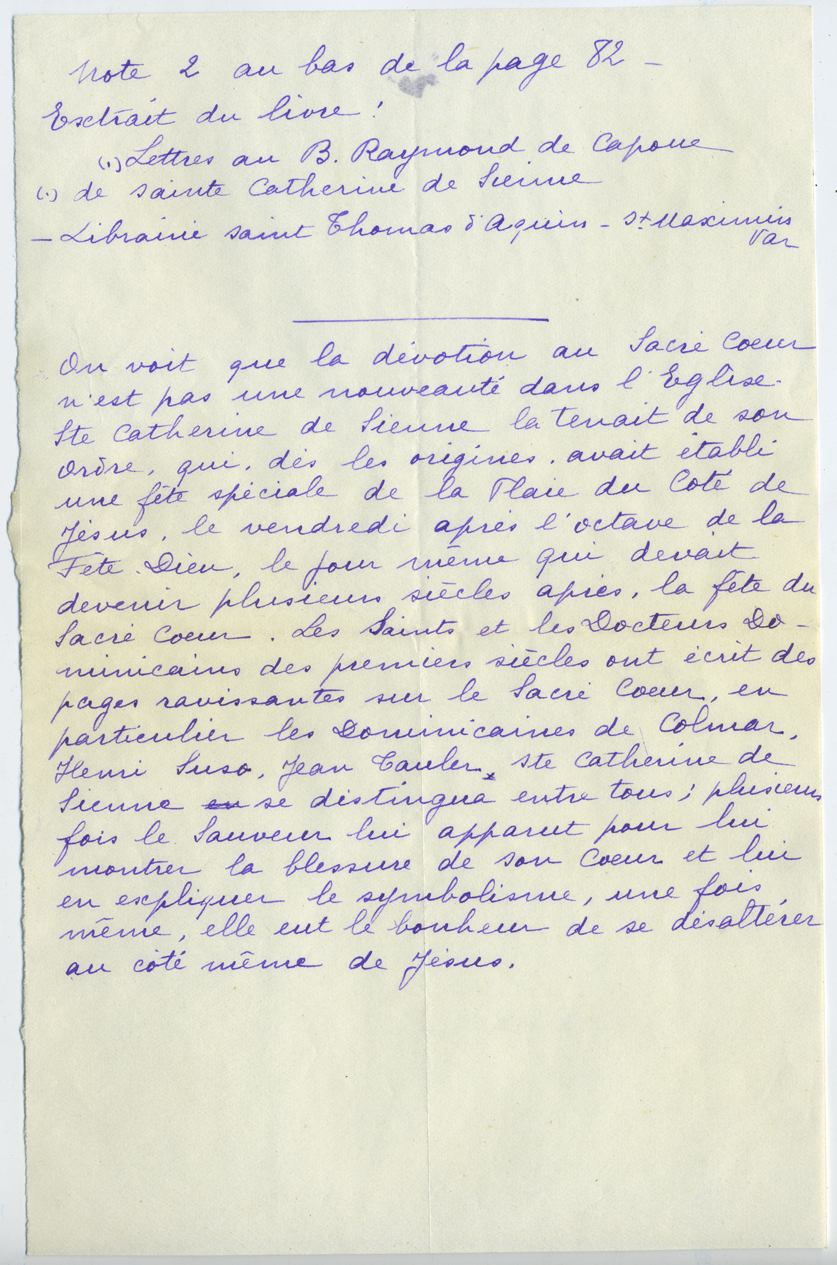 Note 2 au bas de la page 82 -
Extrait du livre :
(1) Lettres au B. Raymond de Capoue
(1) de Sainte Catherine de Sienne
- Librairie Saint Thomas d'Aquin - St Maximin
Var
On voit que la dévotion au Sacré Coeur
n'est pas une nouveauté dans l'Eglise.
Ste Catherine de Sienne la tenait de son
Ordre, qui, dès les origines, avait établi
une fête spéciale de la Plaie du Coté de
Jésus, le vendredi après l'octave de la
Fête Dieu, le jour même qui devait
devenir plusieurs siècles après, la fête du
Sacré Coeur. Les Saints et les Docteurs Do-
minicains des premiers siècles ont écrit des
pages ravissantes sur le Sacré Coeur, en
particulier les Dominicaines de Colmar,
Henri Suso, Jean Tauler, Ste Catherine de
Sienne en se distingua entre tous ; plusieurs
fois le Sauveur lui apparut pour lui
montrer la blessure de son Coeur et lui
en expliquer le symbolisme, une fois
même, elle eut le bonheur de se désaltérer
au côté même de Jésus.